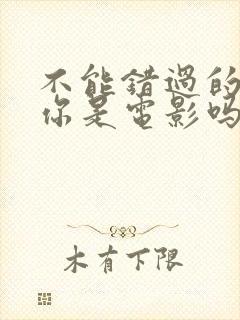 不能错過的
你是電影吗
木有下限